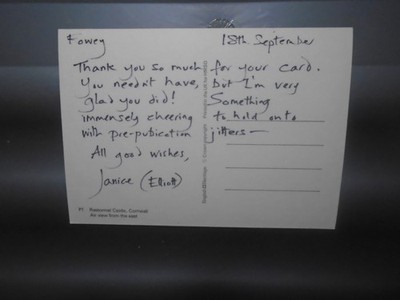 Fowey 18th September
Thank you so much for your card.
You needn't have, but I'm very
glad you did! Something
immensely cheering to hold onto
with pre-publication jitters—
All good wishes,
Janice (Elliott)
Restormel Castle, Cornwall
Air view from the east